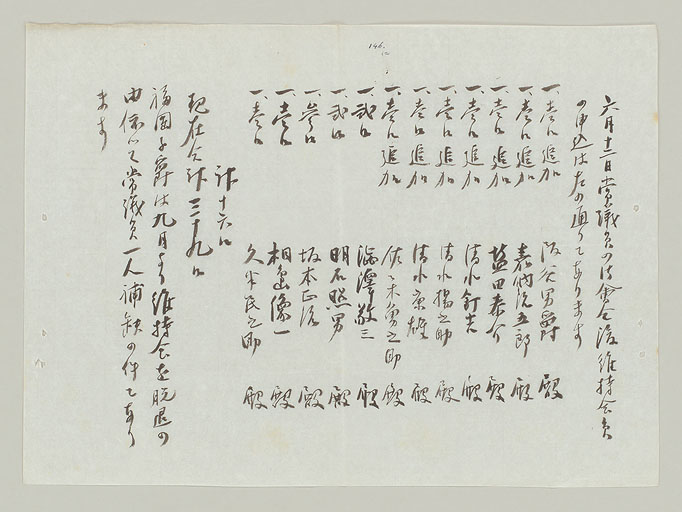 146
六月十三日常議員の御会合後維持会員
の申込は左の通りてあります
一、壱口 追加 阪谷男爵 殿
一、壱口 追加 嘉納治五郎 殿
一、壱口 追加 益田泰介 殿
一、壱口 追加 清水釘吉 殿
一、壱口 追加 清水揚之助 殿
一、壱口 追加 清水康雄 殿
一、壱口 追加 佐々木勇之助 殿
一、弐口 渋澤敬三 殿
一、弐口 明石照男 殿
一、参口 坂本正治 殿
一、壱口 相島像一 殿
一、壱口 久米民之助 殿
計十六口
現在合計三十九口
福岡子爵は九月より維持会を脱退の
由依つて常議員一人補欠の件てあり
ます